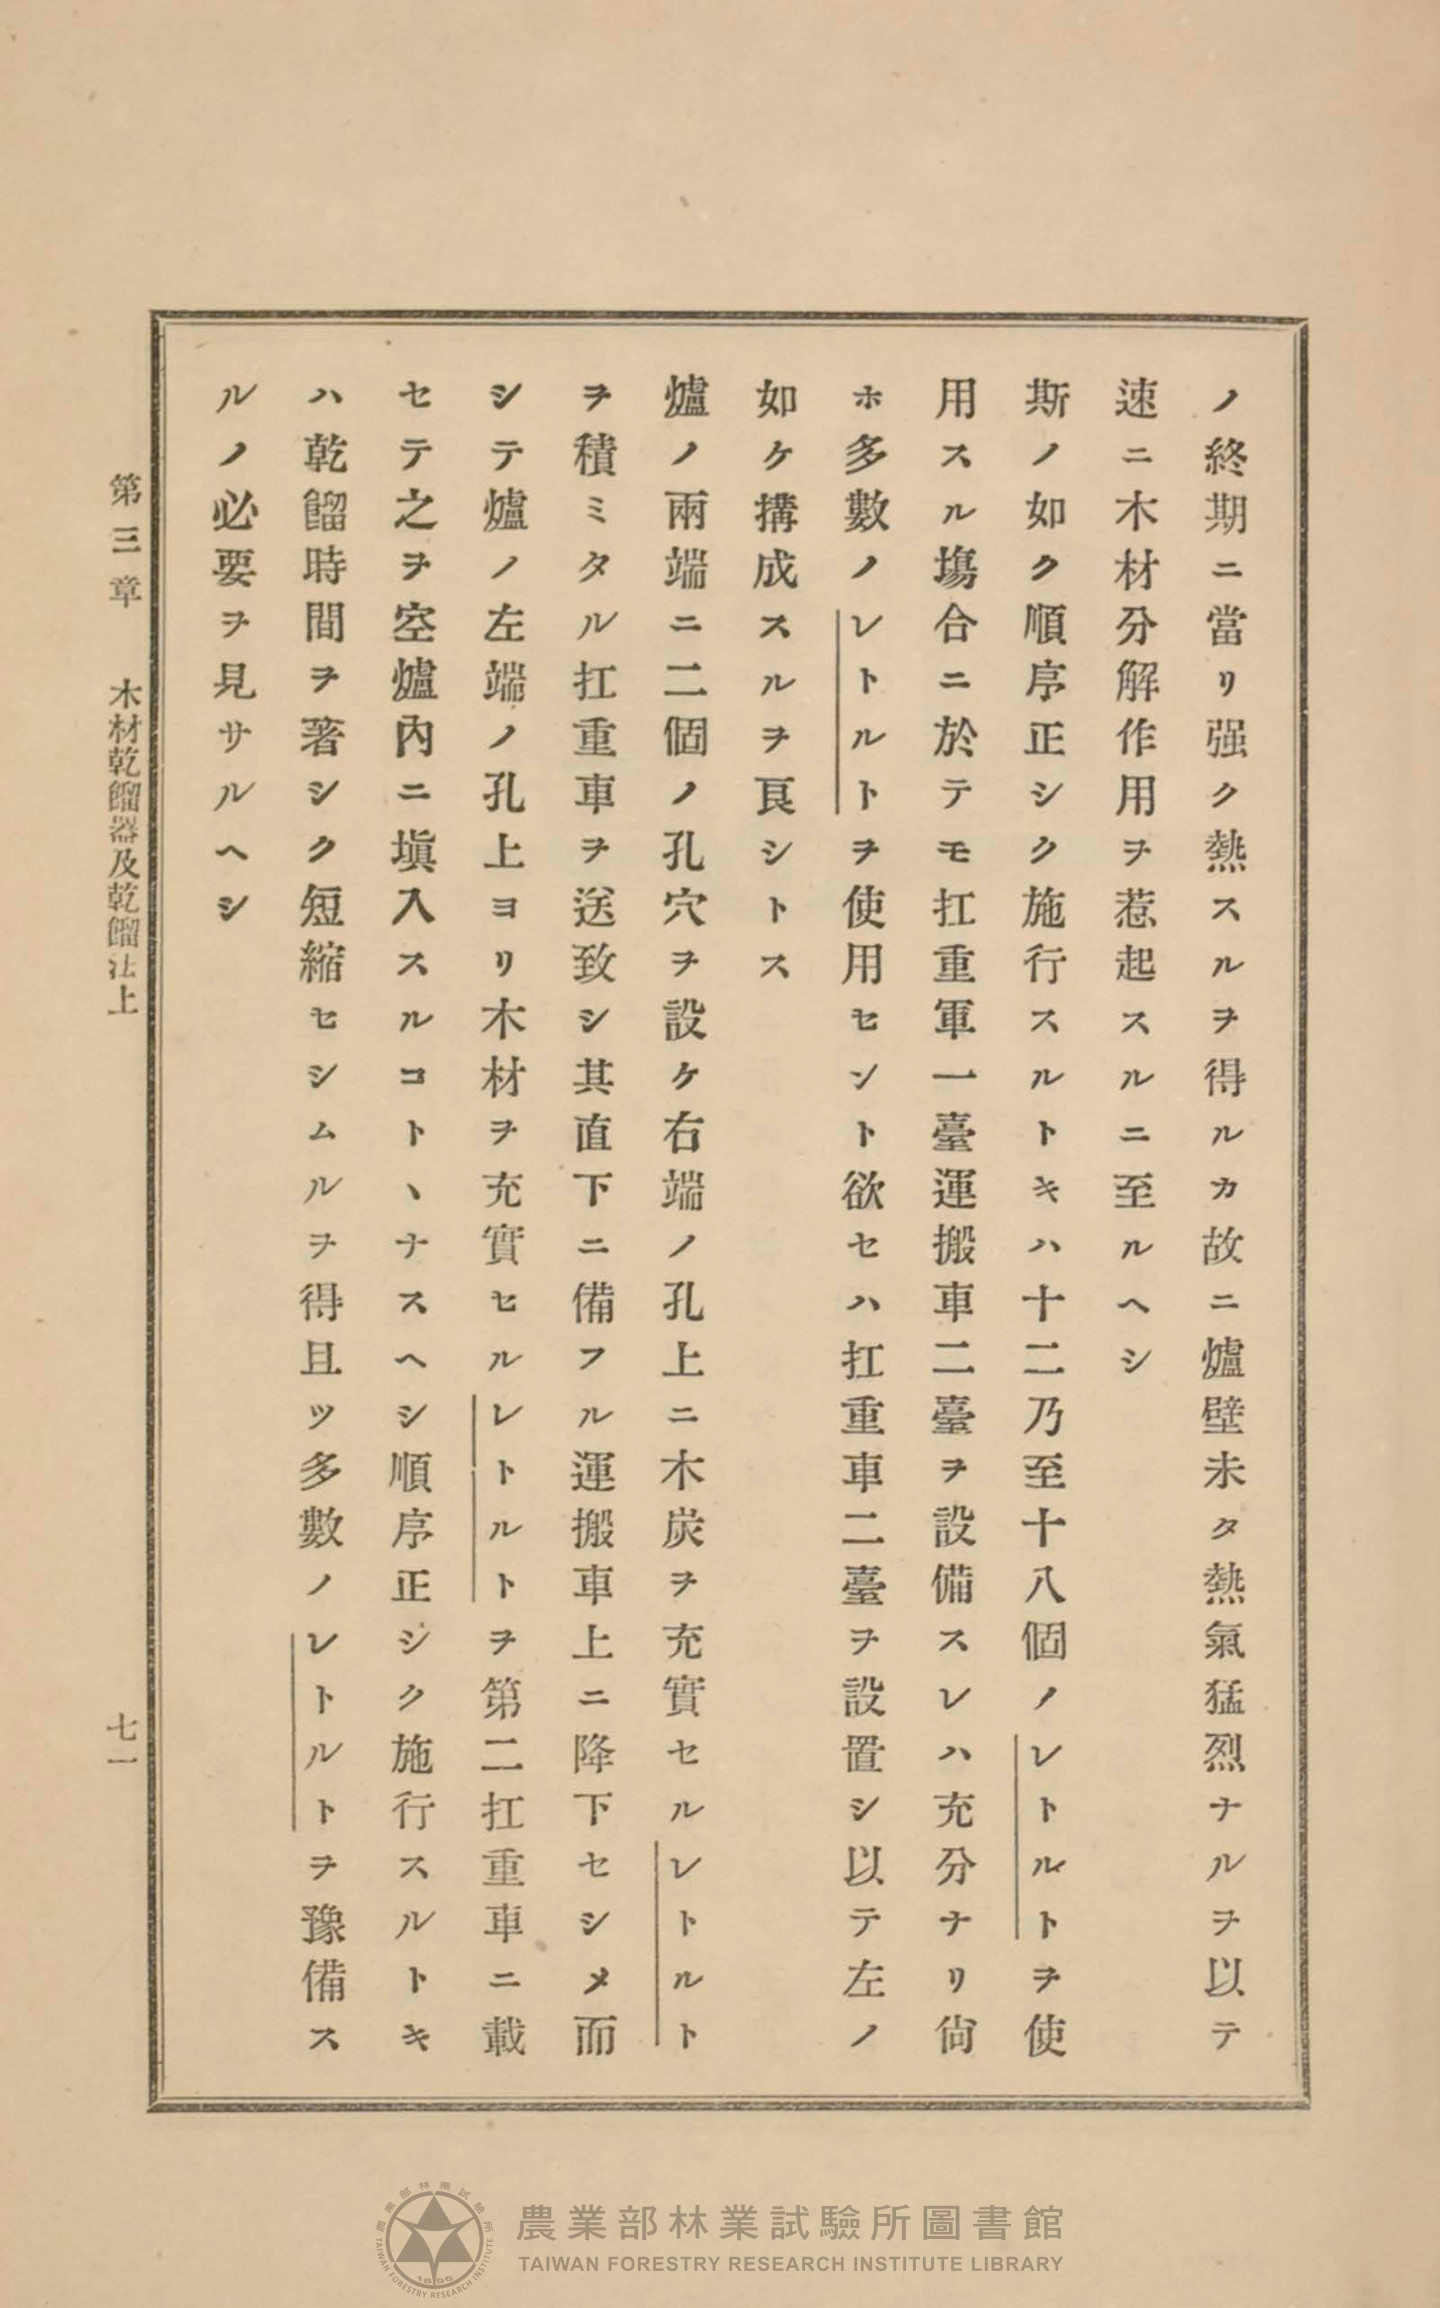 ノ終期ニ當リ强ク熱スルヲ得ルカ故ニ爐壁未タ熱氣猛烈ナルヲ以テ
速ニ木材分解作用ヲ惹起スルニ至ルヘシ
斯ノ如ク順序正シク施行スルトキハ十二乃至十八個ノレトルトヲ使
用スル塲合ニ於テモ扛重軍一臺運搬車二臺ヲ設備スレハ充分ナリ尙
ホ多數ノレトルトヲ使用セント欲セハ扛重車二臺ヲ設置シ以テ左ノ
如ケ搆成スルヲ良シトス
爐ノ兩端ニ二個ノ孔穴ヲ設ケ右端ノ孔上ニ木炭ヲ充實セルレトルト
ヲ積ミタル扛重車ヲ送致シ其直下ニ備フル運搬車上ニ降下セシメ而
シテ爐ノ左端ノ孔上ヨリ木材ヲ充實セルレトルトヲ第二扛重車ニ載
セテ之ヲ空爐內ニ塡入スルコトヽナスヘシ順序正シク施行スルトキ
ハ乾餾時間ヲ著シク短縮セシムルヲ得且ツ多數ノレトルトヲ豫備ス
ルノ必要ヲ見サルヘシ
第三章 木材乾餾器及乾餾法上
七一
農業部林業試驗所圖書館
TAIWAN FORESTRY RESEARCH INSTITUTE LIBRARY
農業部林業試驗所
TAIWAN FORESTRY RESEARCH INSTITUTE
1896